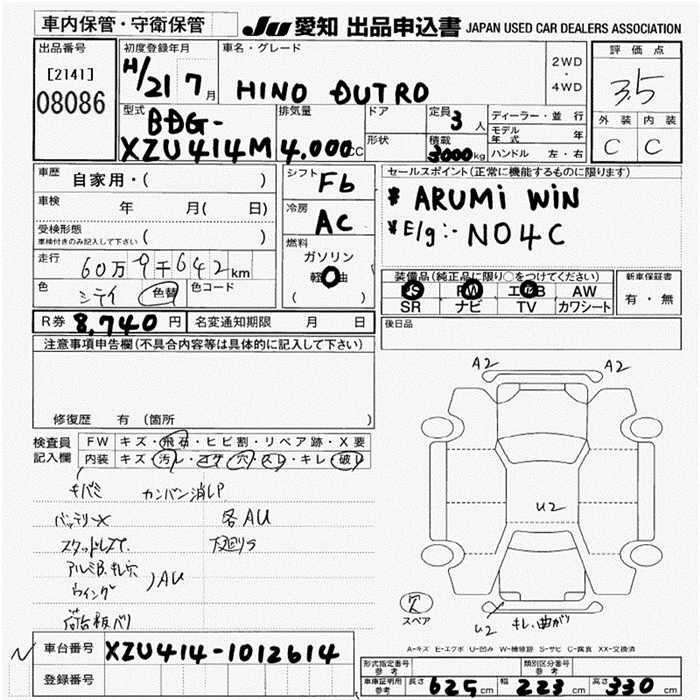 車内保管・守衛保管
JU 愛知 出品申込書 JAPAN USED CAR DEALERS ASSOCIATION
出品番号
[2141]
08086
初度登録年月
H/21 7月
車名・グレード
HINO DUTRO
2WD
・
4WD
評価点
3.5
外装 内装
C C
型式
BDG-
XZU414M
排気量
4.000CC
ドア
形状
定員
3人
積載
3000kg
ディーラー・並行
モデル年式 年
ハンドル 左・右
車歴
自家用・( )
車検
年 月( 日)
受検形態
車検付きのみ記入して下さい ( )
走行
60万9千642km
色
シテイ 色替
色コード
シフト
Fb
冷房
AC
燃料
ガソリン
軽油
( )
セールスポイント(正常に機能するものに限ります)
* ARUMi WiN
* E/g:- N04C
装備品(純正品に限り○をつけてください)
PS PW エアB AW
SR ナビ TV カワシート
新車保証書
有・無
R券 8,740円
名変通知期限 月 日
後日品
注意事項申告欄(不具合内容等は具体的に記入して下さい)
修復歴 有(箇所 )
検査員
記入欄
FW キズ・飛石・ヒビ割・リペア跡・X要
内装 キズ・汚レ・コゲ・穴・スレ・キレ・破レ
キバミ カンバン消しP
バッテリーX 各AU
スタッドレス 下廻りS
アルミB.キレ穴
ウイング )AU
荷台板バリ
A2 A2
U2
欠
スペア
U2 キレ、曲がり
A-キズ E-エクボ U-凹み W-補修跡 S-サビ C-腐食 XX-交換済
N
車台番号 XZU414-1012614
登録番号
形式指定番号 参考
類別区分番号 参考
車庫証明用参考 長さ 625cm 幅 223cm 高さ 330cm